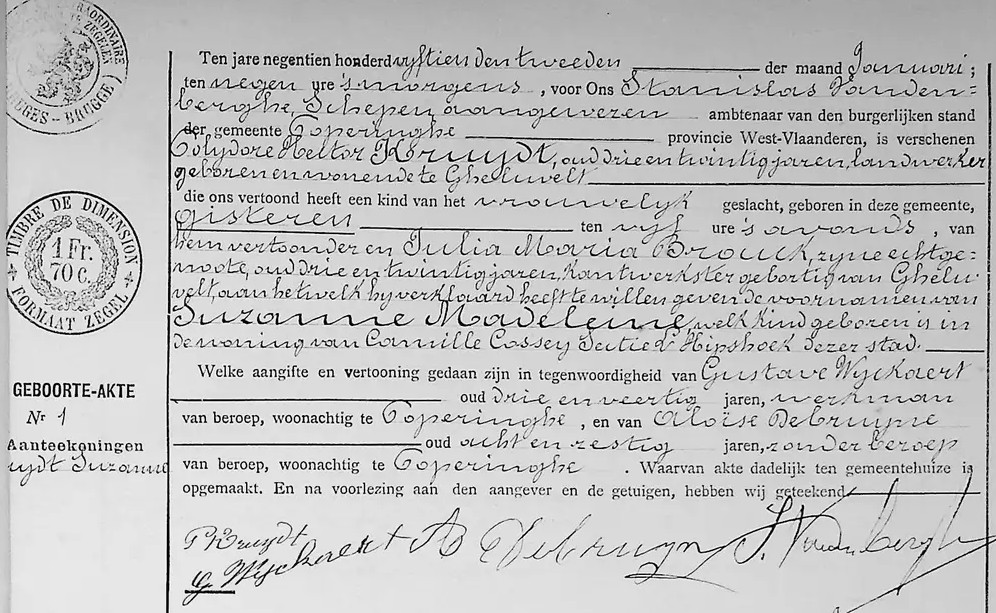 RAORDINAIRE
UEGES - BRUGGE
TIMBRE DE DIMENSION
1 Fr.
70 c.
FORMAAT ZEGEL
GEBOORTE-AKTE
Nr 1
Aanteekeningen
uydt Suzanne
Ten jare negentien honderd vyftien den tweeden der maand Januari ;
ten negen ure 's morgens , voor Ons Stanislas Vanden=
berghe, Schepen, aangewezen ambtenaar van den burgerlijken stand
der gemeente Poperinghe provincie West-Vlaanderen, is verschenen
Polydore Hector Kruydt, oud drie en twintig jaren, landwerker
geboren en wonende te Gheluvelt
die ons vertoond heeft een kind van het vrouwelyk geslacht, geboren in deze gemeente,
gisteren ten vyf ure 's avonds , van
hem vertonder en Julia Maria Brouck, zyne echtge=
noote, oud drie en twintig jaren, kantwerkster gebortig van Ghelu=
velt, aan hetwelk hy verklaard heeft te willen geven de voornamen van
Suzanne Madeleine, welk kind geboren is in
de woning van Camille Cossey Sectie Hipshoek dezer stad.
Welke aangifte en vertooning gedaan zijn in tegenwoordigheid van Gustave Wyckaert
oud drie en veertig jaren, werkman
van beroep, woonachtig te Poperinghe , en van Aloïse Debruyne
oud acht en zestig jaren, zonder beroep
van beroep, woonachtig te Poperinghe . Waarvan akte dadelijk ten gemeentehuize is
opgemaakt. En na voorlezing aan den aangever en de getuigen, hebben wij geteekend
P Kruydt
G. Wyckaert A Debruyn S. Vandenberghe